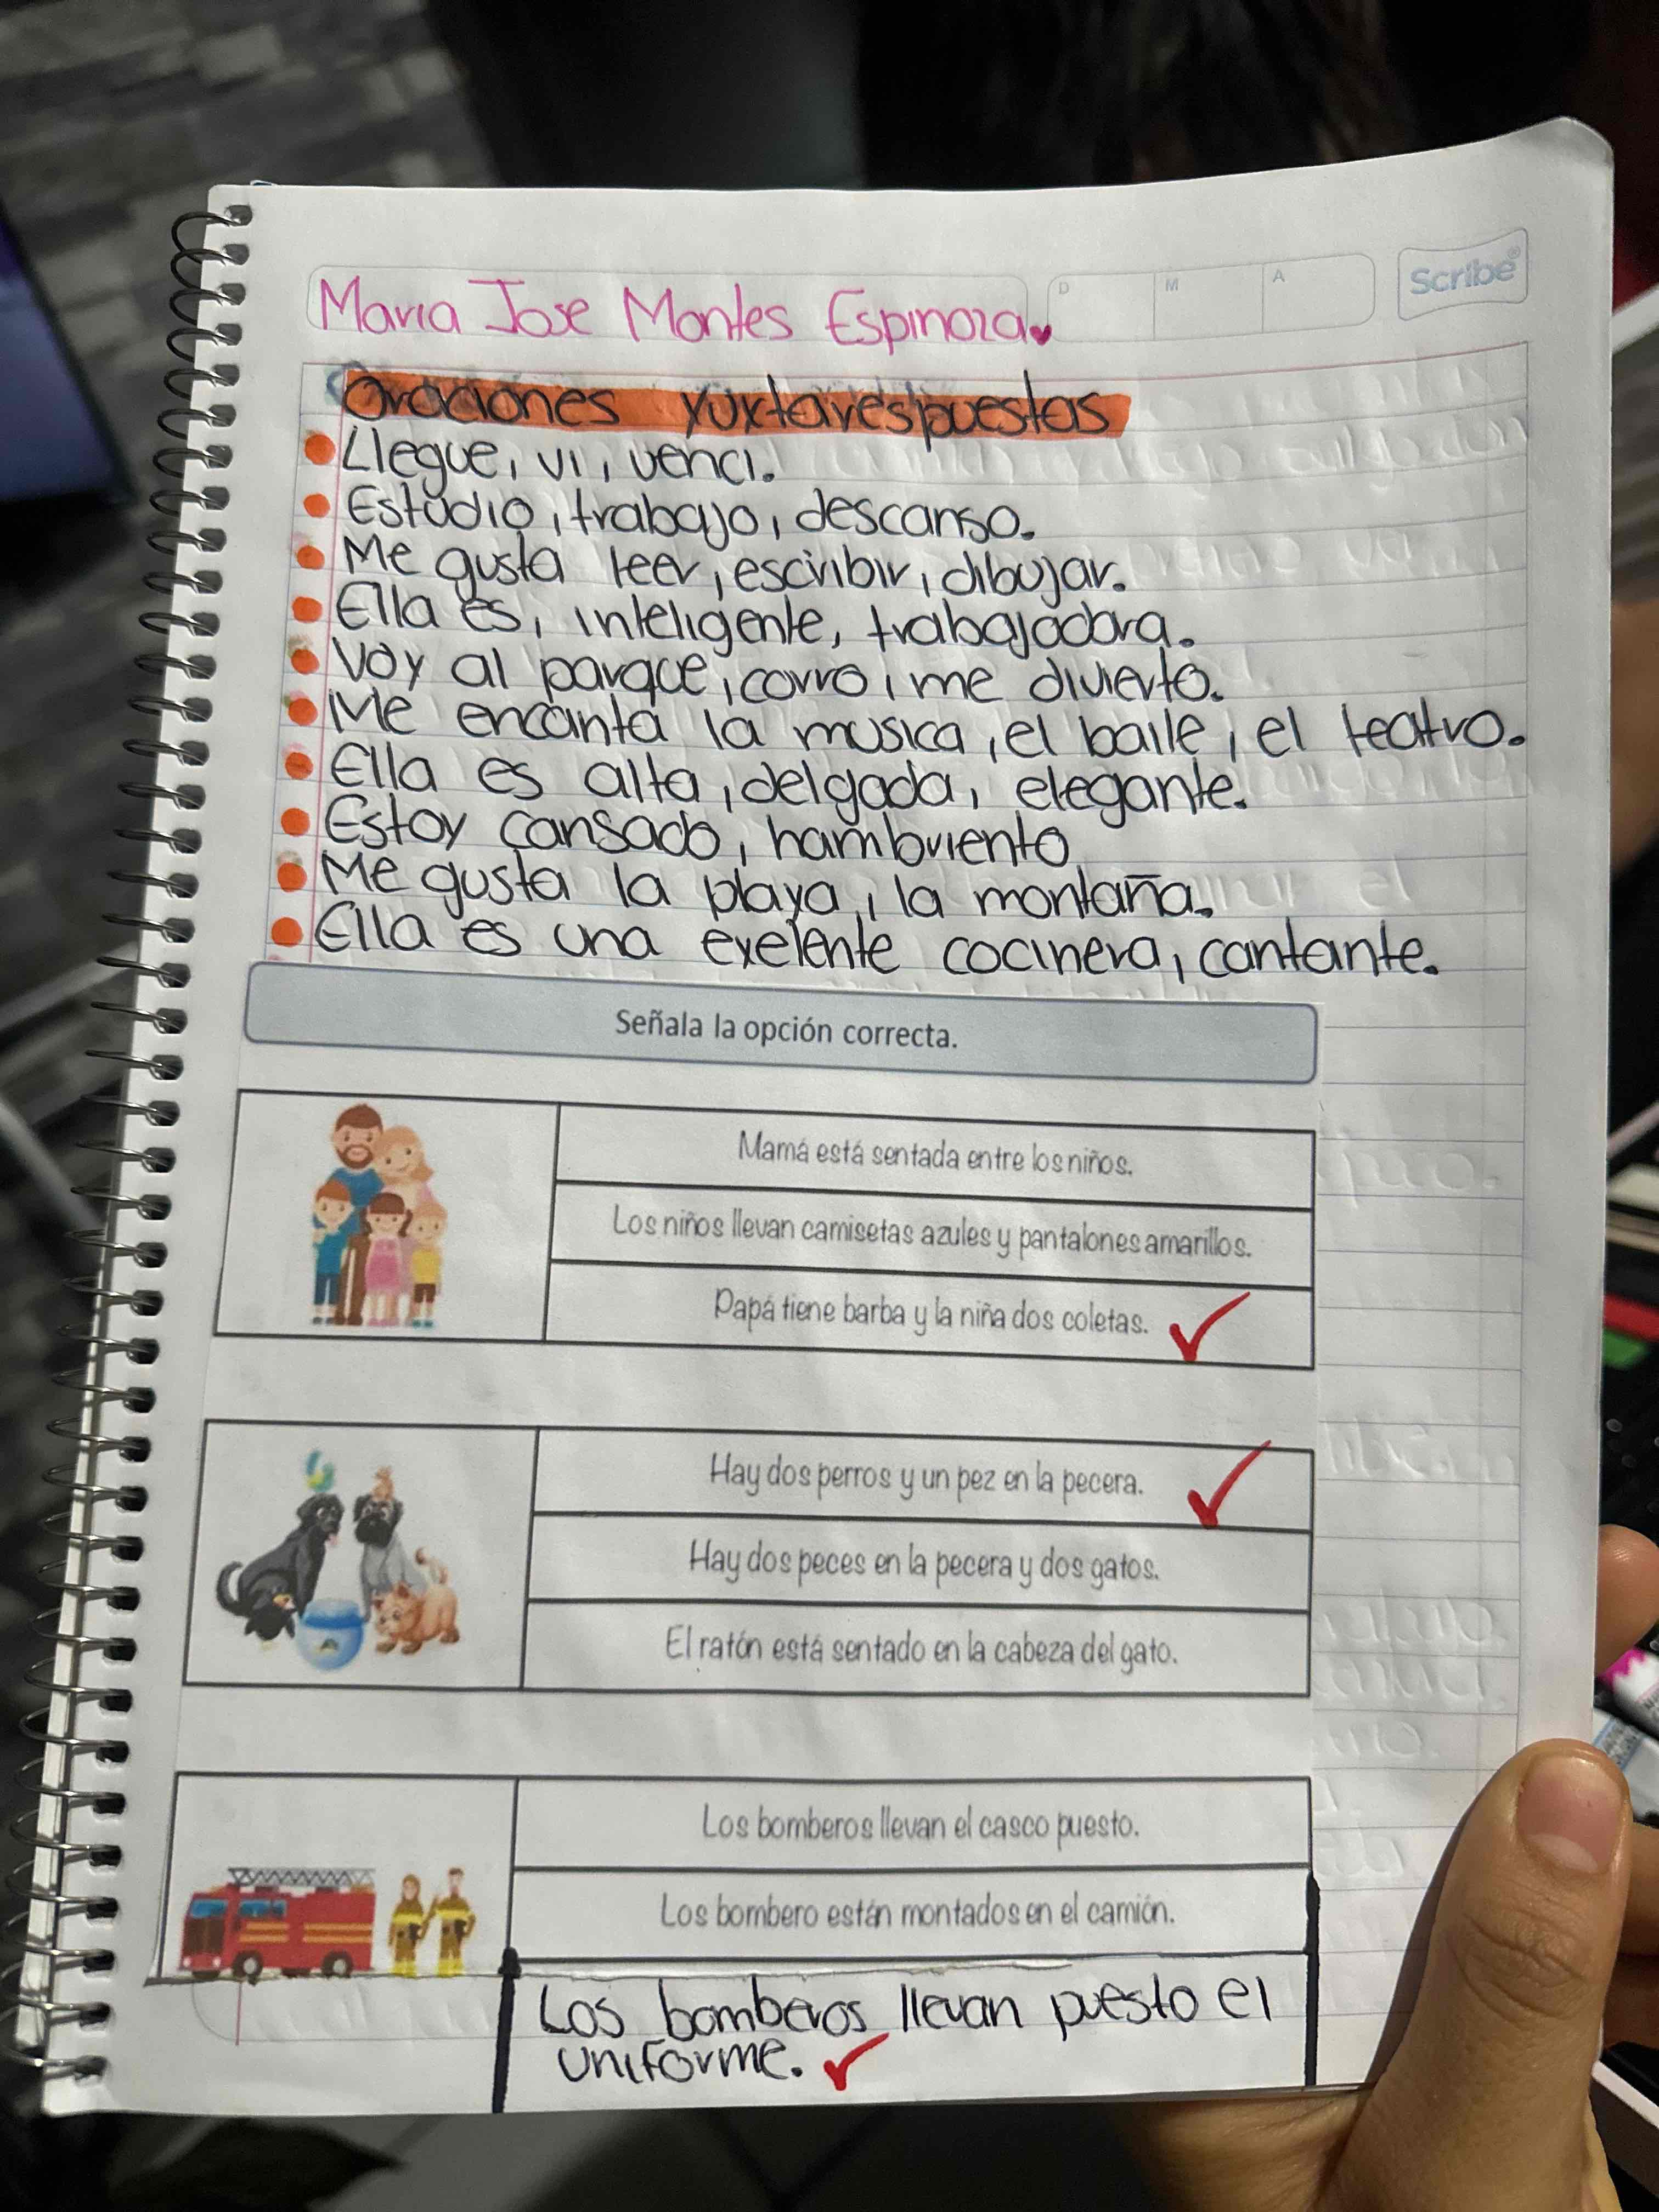 Maria Jose Montes Espinoza
D M A
Scribe
Oraciones yuxtarespuestas
Llegue, vi, venci.
Estudio, trabajo, descanso.
Me gusta leer, escribir, dibujar.
Ella es, inteligente, trabajadora.
Voy al parque, corro, me divierto.
Me encanta la musica, el baile, el teatro.
Ella es alta, delgada, elegante.
Estoy cansado, hambriento
Me gusta la playa, la montaña.
Ella es una exelente cocinera, cantante.
Señala la opción correcta.
Mamá está sentada entre los niños.
Los niños llevan camisetas azules y pantalones amarillos.
Papá tiene barba y la niña dos coletas.
Hay dos perros y un pez en la pecera.
Hay dos peces en la pecera y dos gatos.
El ratón está sentado en la cabeza del gato.
Los bomberos llevan el casco puesto.
Los bombero están montados en el camión.
Los bomberos llevan puesto el
uniforme.